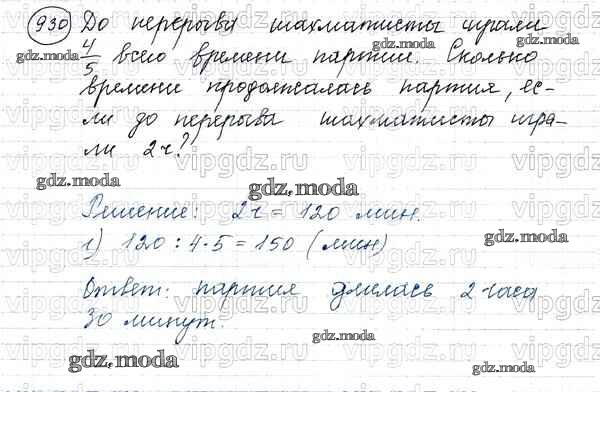 930 До перерыва шахматисты играли
gdz.moda 4/5 всего времени партии. Сколько gdz.moda
времени продолжалась партия, ес-
ли до перерыва шахматисты игра-
ли 2 ч?
vipgdz.ru
gdz.moda
gdz.moda
Решение: 2 ч = 120 мин.
gdz.moda
1) 120 : 4 · 5 = 150 (мин)
Ответ: партия длилась 2 часа
30 минут.
gdz.moda
gdz.moda
vipgdz.ru
gdz.moda